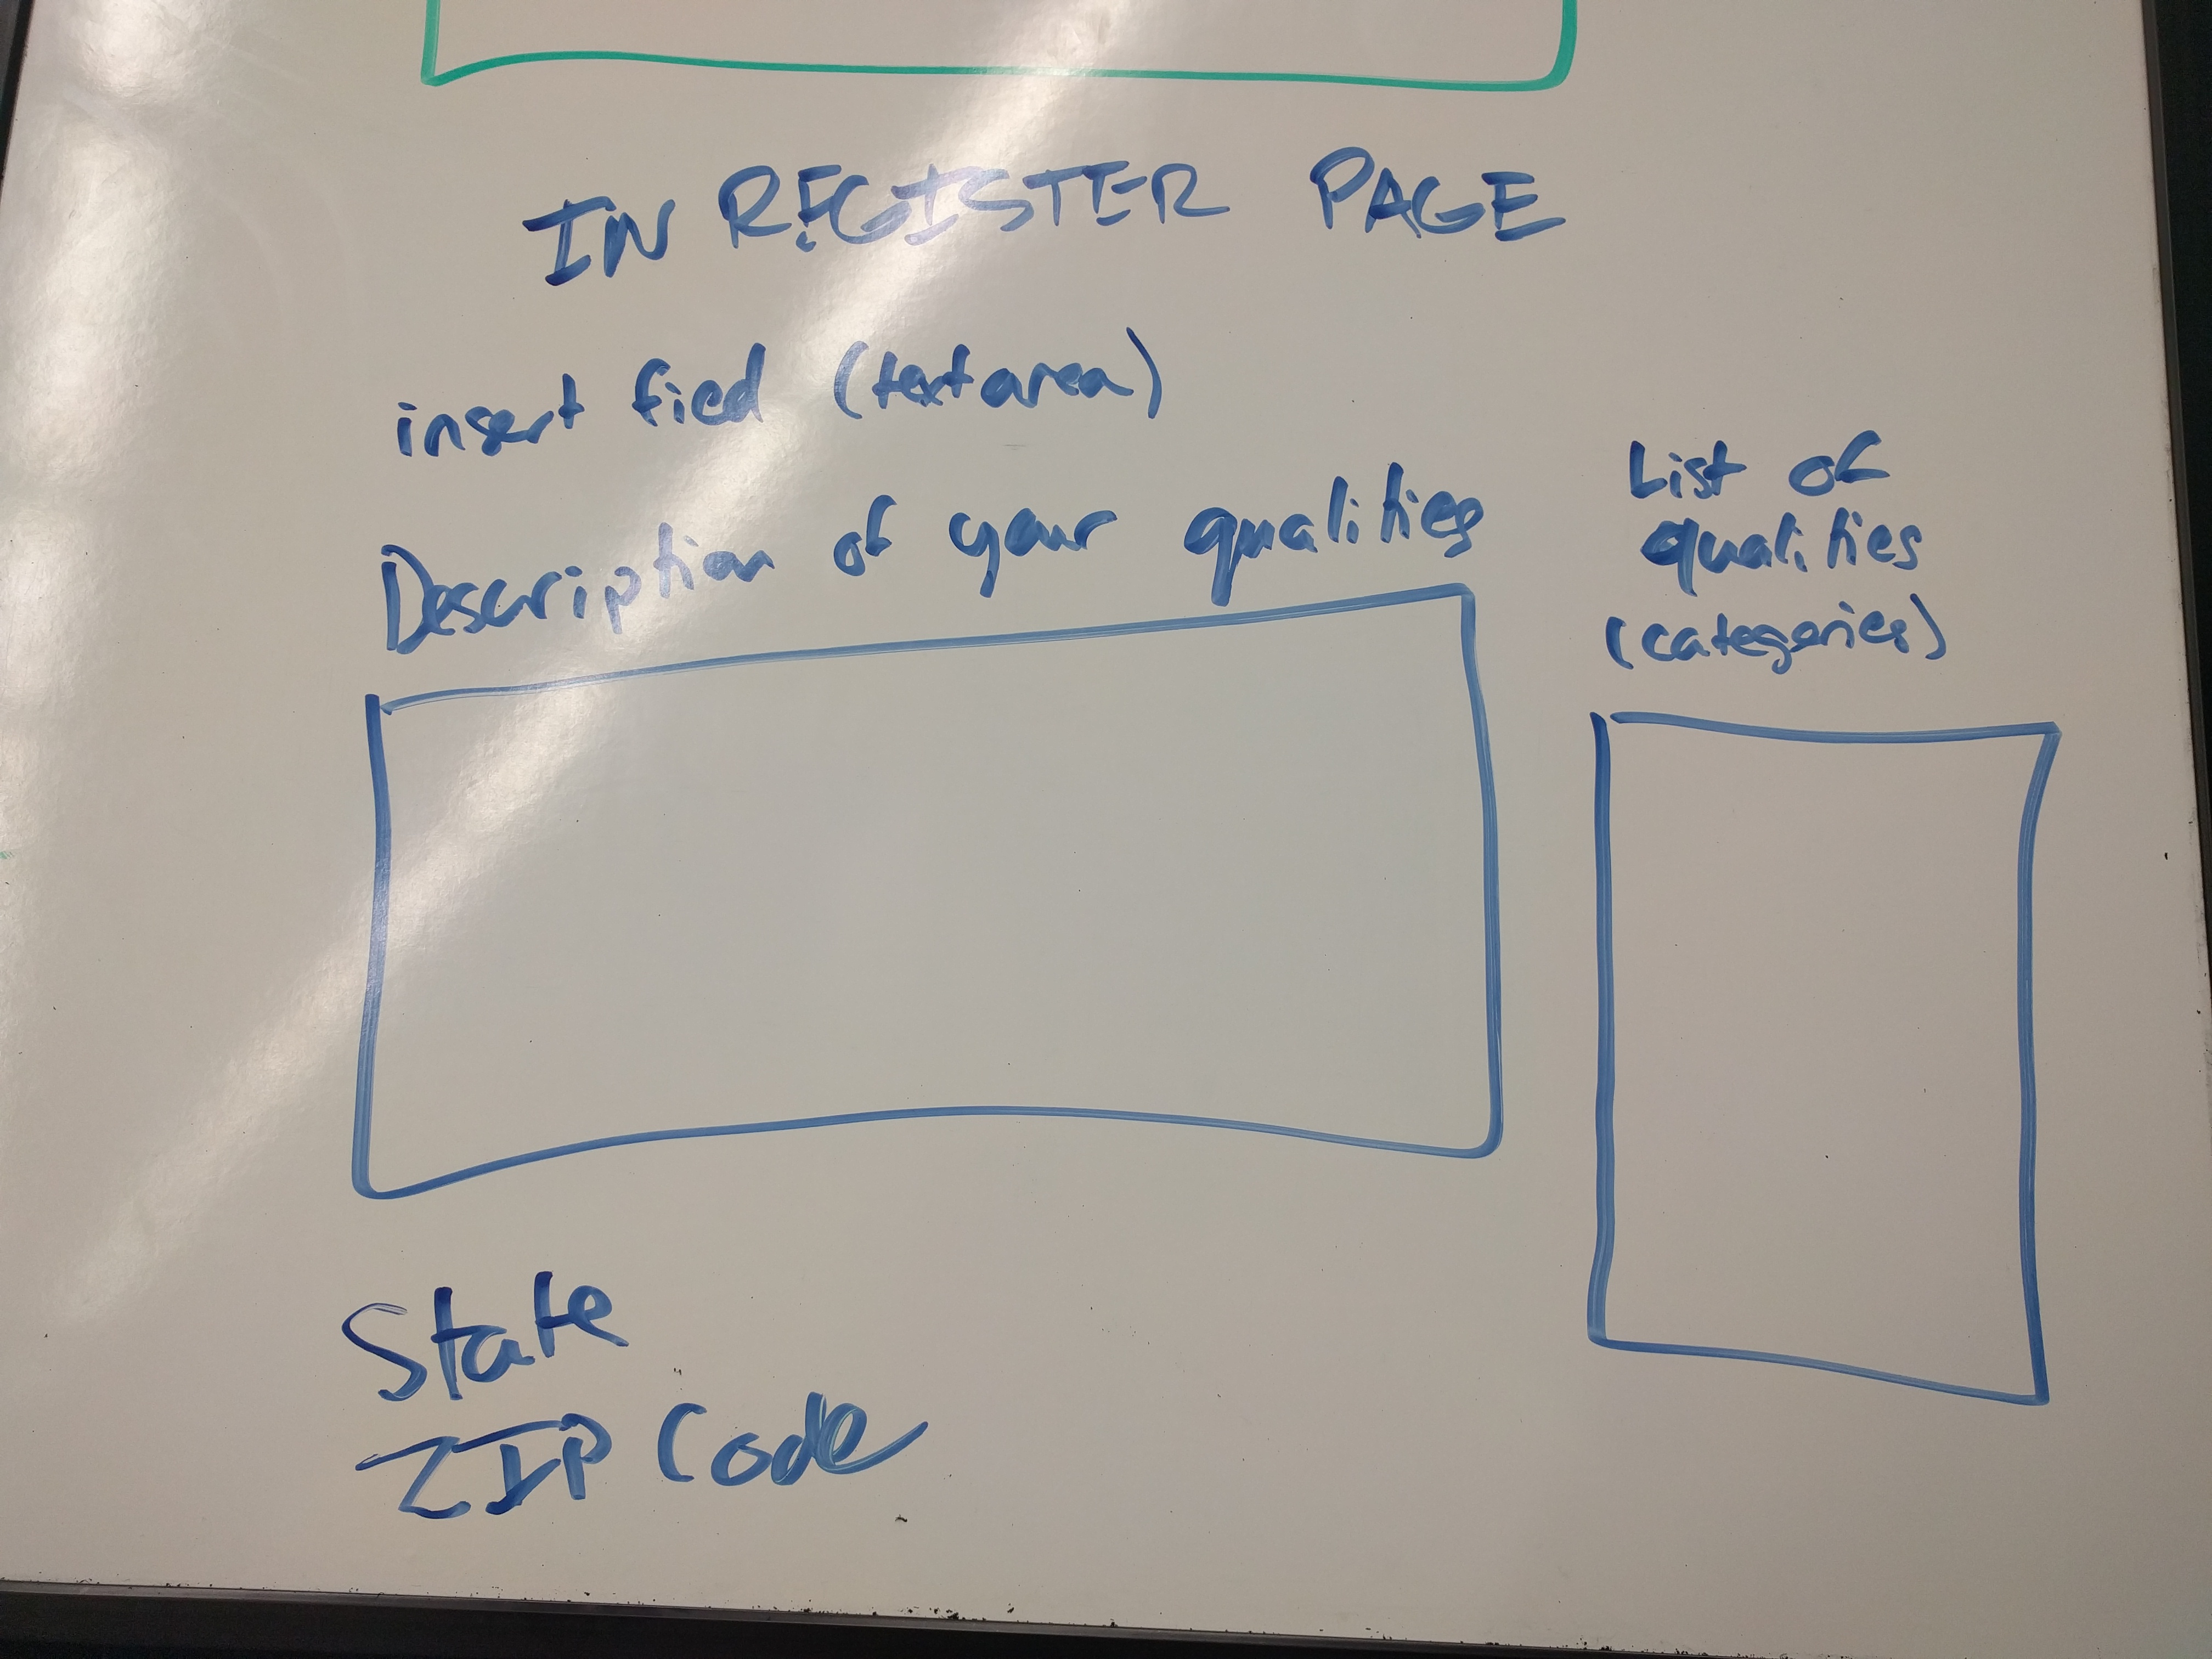 IN REGISTER PAGE
insert fied (textarea)
Description of your qualities
List of
qualities
(categories)
State
ZIP Code